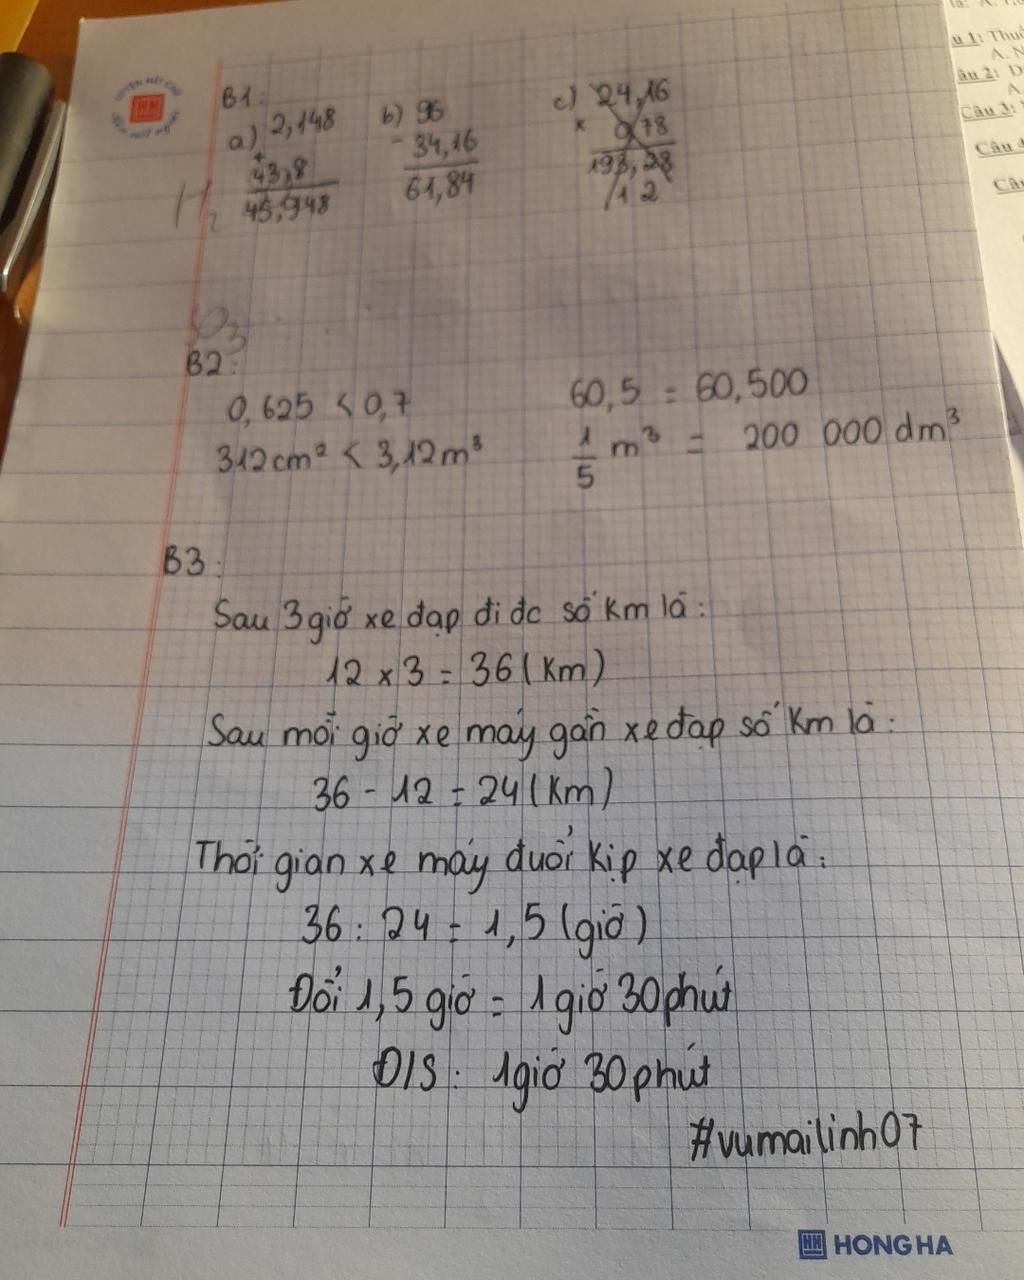 B1:
a) 2,148
+
43,8
45,948
b) 96
- 34,16
61,84
c) 24,16
x 0,78
193,28
/12
B2:
0,625 < 0,7
60,5 = 60,500
312cm² < 3,12m³
1/5 m³ = 200 000 dm³
B3:
Sau 3 giờ xe đạp đi đc số km là:
12 x 3 = 36 (km)
Sau mỗi giờ xe máy gần xe đạp số km là:
36 - 12 = 24 (km)
Thời gian xe máy đuổi kịp xe đạp là:
36 : 24 = 1,5 (giờ)
Đổi 1,5 giờ = 1 giờ 30 phút
Đ/S: 1 giờ 30 phút
#vumailinh07
HONG HA
u 1: Thu
A. N
âu 2: D
A.
Câu 3:
Câu 4
Câ